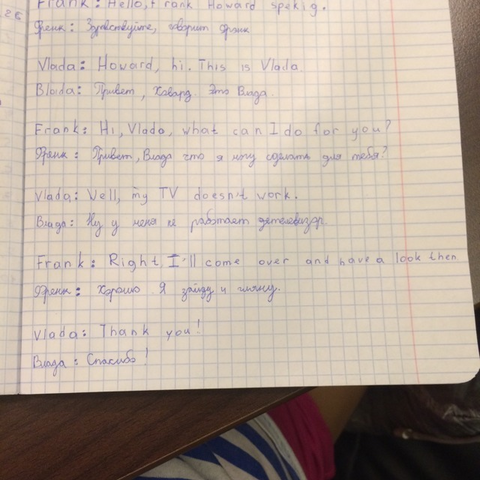 26
Frank: Hello, Frank Howard spekig.
Френк: Здравствуйте, говорит Франк
Vlada: Howard, hi. This is Vlada.
Влада: Привет, Ховард. Это Влада.
Frank: Hi, Vlada, what can I do for you?
Френк: Привет, Влада что я могу сделать для тебя?
Vlada: Well, my TV doesn't work.
Влада: Ну у меня не работает телевизор.
Frank: Right, I'll come over and have a look then
Френк: Хорошо. Я зайду и гляну.
Vlada: Thank you!
Влада: Спасибо!